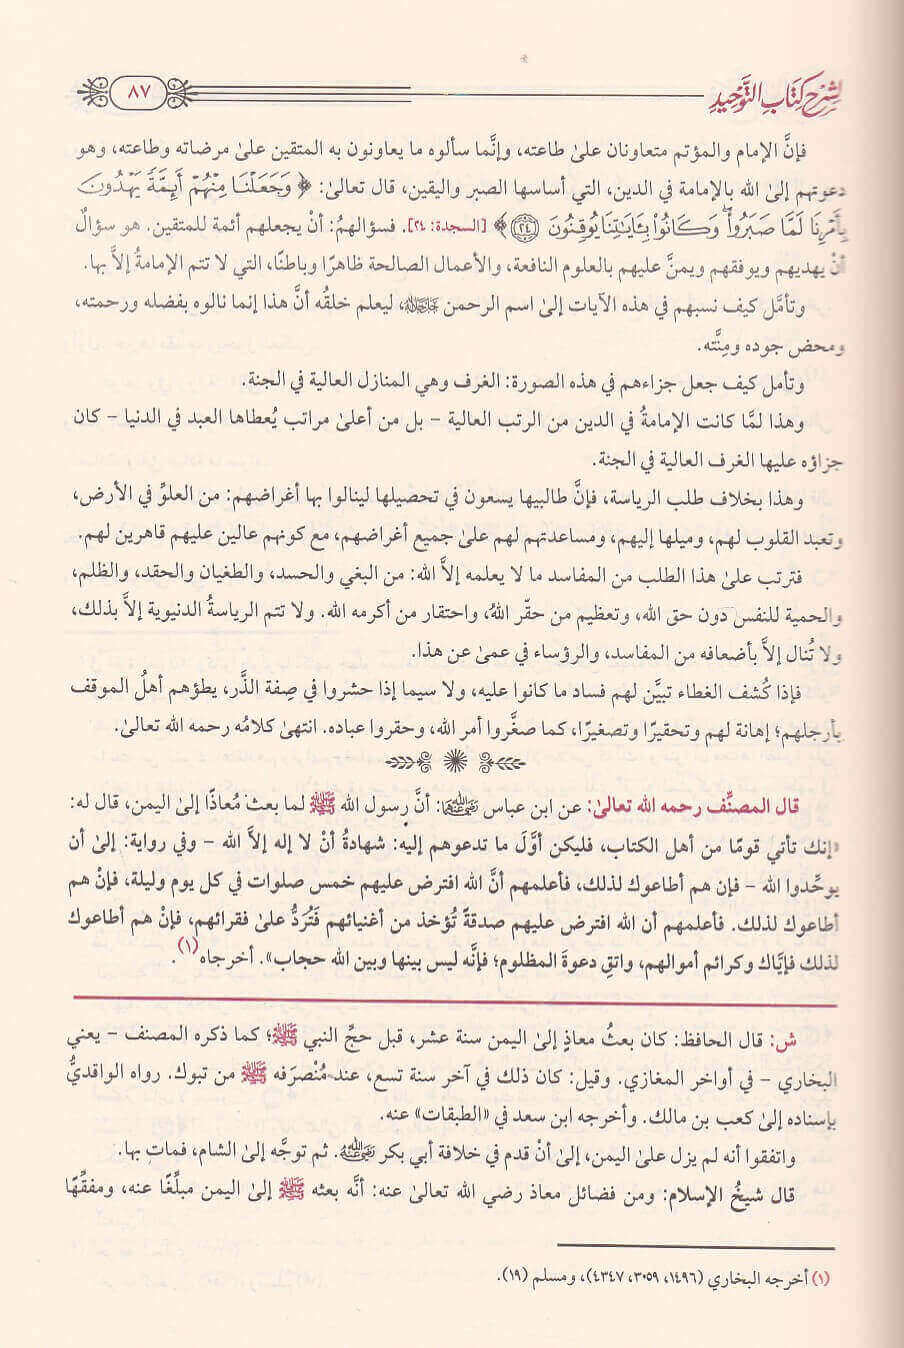 شرح كتاب التوحيد
٨٧
فإنَّ الإمام والمؤتم متعاونان علىٰ طاعته، وإنَّما سألوه ما يعاونون به المتقين علىٰ مرضاته وطاعته، وهو
دعوتهم إلىٰ الله بالإمامة في الدين، التي أساسها الصبر واليقين، قال تعالىٰ: ﴿وَجَعَلْنَا مِنْهُمْ أَئِمَّةً يَهْدُونَ
بِأَمْرِنَا لَمَّا صَبَرُواْ ۖ وَكَانُواْ بِـَٔايَـٰتِنَا يُوقِنُونَ ٢٤﴾ [السجدة: ٢٤]. فسؤالهمُ: أنْ يجعلهم أئمة للمتقين. هو سؤالٌ
أنْ يهديهم ويوفقهم ويمنَّ عليهم بالعلوم النافعة، والأعمال الصالحة ظاهرًا وباطنًا، التي لا تتم الإمامةُ إلاَّ بها.
وتأمَّل كيف نسبهم في هذه الآيات إلىٰ اسم الرحمن ﷻ، ليعلم خلقُه أنَّ هذا إنما نالوه بفضله ورحمته،
ومحض جوده ومِنَّته.
وتأمل كيف جعل جزاءهم في هذه الصورة: الغرف وهي المنازل العالية في الجنة.
وهذا لمَّا كانت الإمامةُ في الدين من الرتب العالية – بل من أعلىٰ مراتب يُعطاها العبد في الدنيا – كان
جزاؤه عليها الغرف العالية في الجنة.
وهذا بخلاف طلب الرياسة، فإنَّ طالبيها يسعون في تحصيلها لينالوا بها أغراضهم: من العلوِّ في الأرض،
وتعبد القلوب لهم، وميلها إليهم، ومساعدتهم لهم علىٰ جميع أغراضهم، مع كونهم عالين عليهم قاهرين لهم.
فترتب علىٰ هذا الطلب من المفاسد ما لا يعلمه إلاَّ الله: من البغي والحسد، والطغيان والحقد، والظلم،
والحمية للنفس دون حق الله، وتعظيم من حقَّر اللهُ، واحتقار من أكرمه الله. ولا تتم الرياسةُ الدنيوية إلاَّ بذلك،
ولا تُنال إلاَّ بأضعافه من المفاسد، والرؤساء في عمىٰ عن هذا.
فإذا كُشف الغطاء تبيَّن لهم فساد ما كانوا عليه، ولا سيما إذا حشروا في صِفة الذَّر، يطؤهم أهلُ الموقف
بأرجلهم؛ إهانة لهم وتحقيرًا وتصغيرًا، كما صغَّروا أمر الله، وحقروا عباده. انتهىٰ كلامُه رحمه الله تعالىٰ.
قال المصنِّف رحمه الله تعالىٰ: عن ابن عباس رضي الله عنهما: أنَّ رسول الله ﷺ لما بعث مُعاذًا إلىٰ اليمن، قال له:
«إنك تأتي قومًا من أهل الكتاب، فليكن أوَّلَ ما تدعوهم إليه: شهادةُ أنْ لا إله إلاَّ الله – وفي رواية: إلىٰ أن
يوحِّدوا الله – فإن هم أطاعوك لذلك، فأعلمهم أنَّ الله افترض عليهم خمس صلوات في كل يوم وليلة، فإنْ هم
أطاعوك لذلك. فأعلمهم أن الله افترض عليهم صدقةً تُؤخذ من أغنيائهم فَتُرَدُّ علىٰ فقرائهم، فإنْ هم أطاعوك
لذلك فإيَّاك وكرائم أموالهم، واتقِ دعوةَ المظلوم؛ فإنَّه ليس بينها وبين الله حجاب». أخرجاه(١).
ش: قال الحافظ: كان بعثُ معاذٍ إلىٰ اليمن سنة عشر، قبل حجِّ النبي ﷺ؛ كما ذكره المصنف – يعني
البخاري – في أواخر المغازي. وقيل: كان ذلك في آخر سنة تسع، عند مُنْصرَفه ﷺ من تبوك. رواه الواقديُّ
بإسناده إلىٰ كعب بن مالك. وأخرجه ابن سعد في «الطبقات» عنه.
واتفقوا أنه لم يزل علىٰ اليمن، إلىٰ أنْ قدم في خلافة أبي بكر رضي الله عنه. ثم توجَّه إلىٰ الشام، فمات بها.
قال شيخُ الإسلام: ومن فضائل معاذ رضي الله تعالىٰ عنه: أنَّه بعثه ﷺ إلىٰ اليمن مبلِّغًا عنه، ومفقِّهًا
(١) أخرجه البخاري (١٤٩٦، ٣٠٥٩، ٤٣٤٧)، ومسلم (١٩).